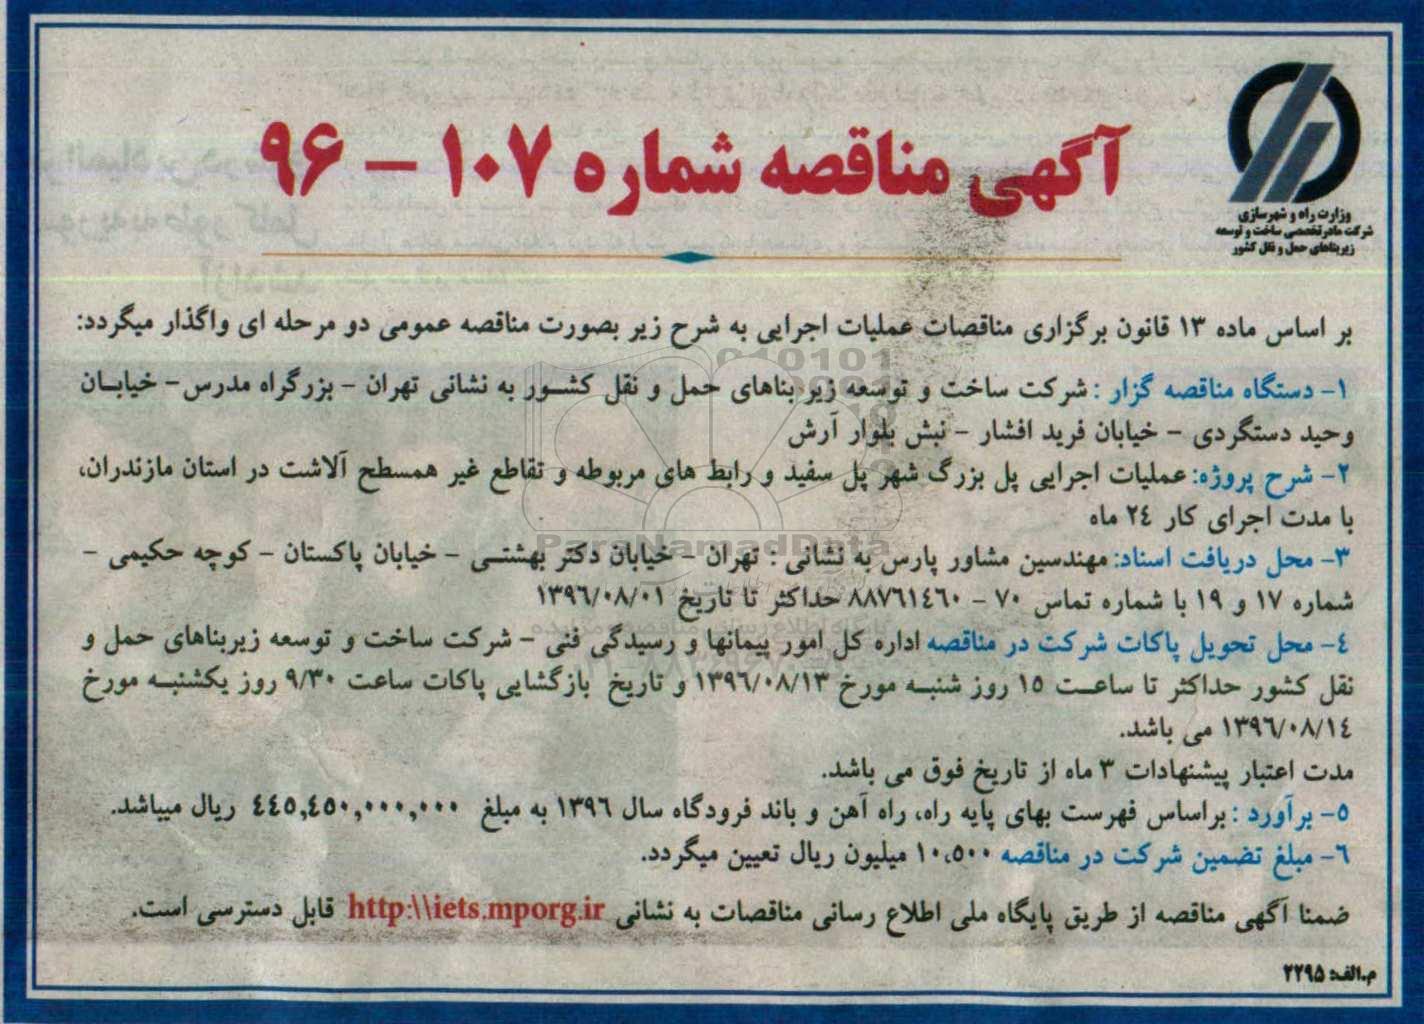 وزارت راه و شهرسازی
شرکت مادرتخصصی ساخت و توسعه
زیربناهای حمل و نقل کشور
آگهی مناقصه شماره ۱۰۷ – ۹۶
بر اساس ماده ۱۳ قانون برگزاری مناقصات عملیات اجرایی به شرح زیر بصورت مناقصه عمومی دو مرحله ای واگذار میگردد:
۱- دستگاه مناقصه گزار : شرکت ساخت و توسعه زیر بناهای حمل و نقل کشور به نشانی تهران – بزرگراه مدرس – خیابان
وحید دستگردی – خیابان فرید افشار – نبش بلوار آرش
۲- شرح پروژه: عملیات اجرایی پل بزرگ شهر پل سفید و رابط های مربوطه و تقاطع غیر همسطح آلاشت در استان مازندران،
با مدت اجرای کار ۲۴ ماه
۳- محل دریافت اسناد: مهندسین مشاور پارس به نشانی : تهران – خیابان دکتر بهشتی – خیابان پاکستان – کوچه حکیمی –
شماره ۱۷ و ۱۹ با شماره تماس ۷۰ – ۸۸۷۶۱۴۶۰ حداکثر تا تاریخ ۱۳۹۶/۰۸/۰۱
۴- محل تحویل پاکات شرکت در مناقصه اداره کل امور پیمانها و رسیدگی فنی – شرکت ساخت و توسعه زیربناهای حمل و
نقل کشور حداکثر تا ساعت ۱۵ روز شنبه مورخ ۱۳۹۶/۰۸/۱۳ و تاریخ بازگشایی پاکات ساعت ۹/۳۰ روز یکشنبه مورخ
۱۳۹۶/۰۸/۱۴ می باشد.
مدت اعتبار پیشنهادات ۳ ماه از تاریخ فوق می باشد.
۵- برآورد : براساس فهرست بهای پایه راه، راه آهن و باند فرودگاه سال ۱۳۹۶ به مبلغ ۴۴۵,۴۵۰,۰۰۰,۰۰۰ ریال میباشد.
۶- مبلغ تضمین شرکت در مناقصه ۱۰،۵۰۰ میلیون ریال تعیین میگردد.
ضمنا آگهی مناقصه از طریق پایگاه ملی اطلاع رسانی مناقصات به نشانی http:\\iets.mporg.ir قابل دسترسی است.
م.الف: ۲۲۹۵
ParaNamadData